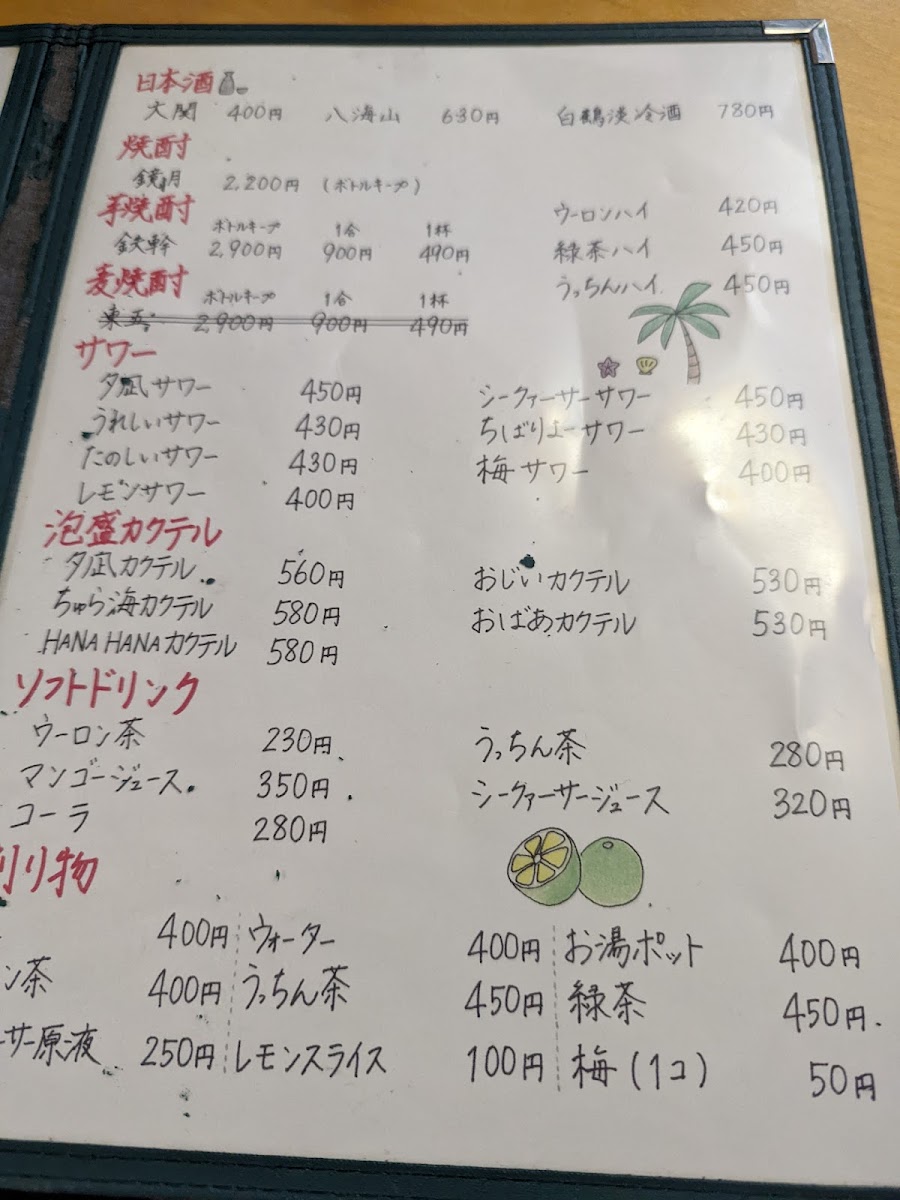 日本酒
大関 400円 八海山 630円 白鶴淡冷酒 780円
焼酎
鏡月 2,200円 (ボトルキープ)
芋焼酎 ウーロンハイ 420円
ボトルキープ 1合 1杯
鉄幹 2,900円 900円 490円 緑茶ハイ 450円
麦焼酎 うっちんハイ 450円
ボトルキープ 1合 1杯
2,900円 900円 490円
サワー
夕凪サワー 450円 シークァーサーサワー 450円
うれしいサワー 430円 ちばりよーサワー 430円
たのしいサワー 430円 梅サワー 400円
レモンサワー 400円
泡盛カクテル
夕凪カクテル 560円 おじいカクテル 530円
ちゅら海カクテル 580円 おばあカクテル 530円
HANA HANAカクテル 580円
ソフトドリンク
ウーロン茶 230円 うっちん茶 280円
マンゴージュース 350円 シークァーサージュース 320円
コーラ 280円
割り物
400円 ウォーター 400円 お湯ポット 400円
ン茶 400円 うっちん茶 450円 緑茶 450円
ーサー原液 250円 レモンスライス 100円 梅(1コ) 50円